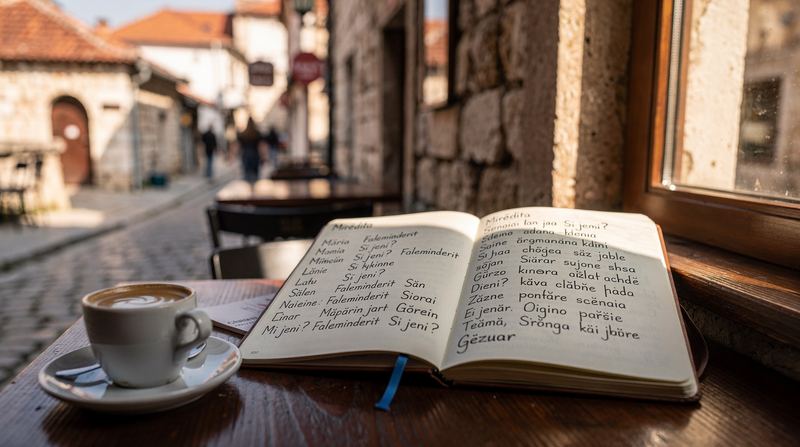 Mirëdita
Märia Faleminderit
Mamia Si jeni?
Mimcün Si jeni? Faleminderit
Länie Si hkinne
Latu Si jeni?
Sälen Faleminderit Sän
Naieine: Faleminderit Siorai
Einar Mäpärin jart Görein
Mi jeni? Faleminderit Si jeni?
Mirëdita
lan jaa Si jemi?
adana kienia
Saine ärgmanäna kdini
Si haa chögea säz jable
söjan Siürar sujone shsa
Gürzo kınəra oižlat achdë
Dieni? käva cläbñe þada
Zäzne ponfäre scënaia
Ei jenär. Oigino paršie
Teämä, Siröngə käi jbäre
Gëzuar